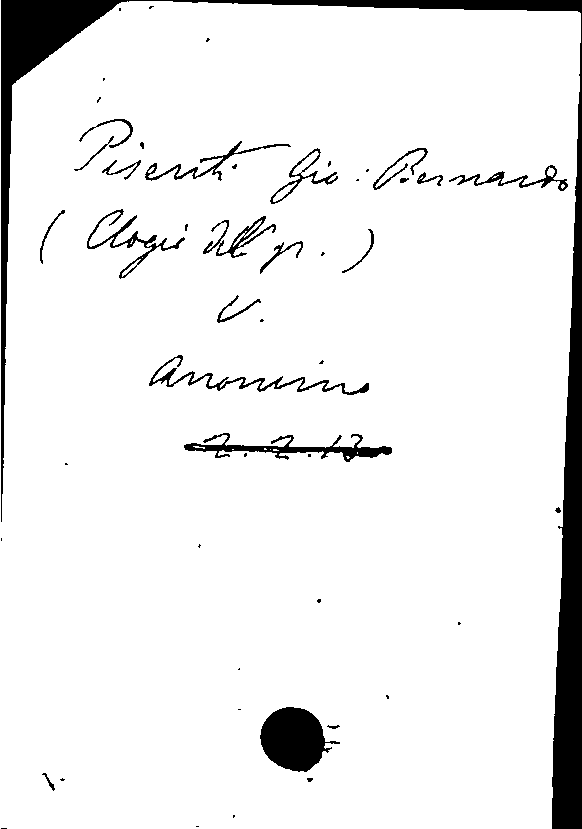 Pisenti Gio: Bernardo
(Elogio dell' pr.)
V.
Anonimo
2.2.13